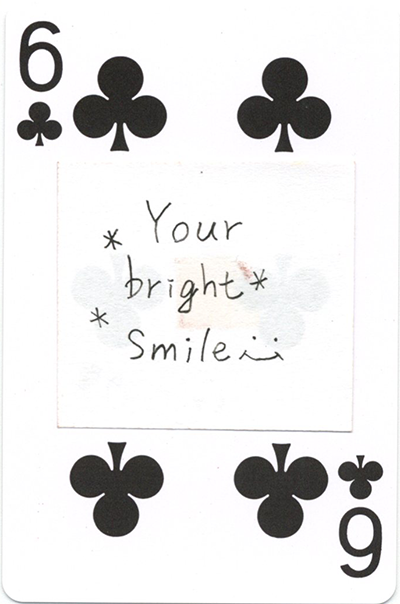 6
* Your
bright *
* Smile :)
9